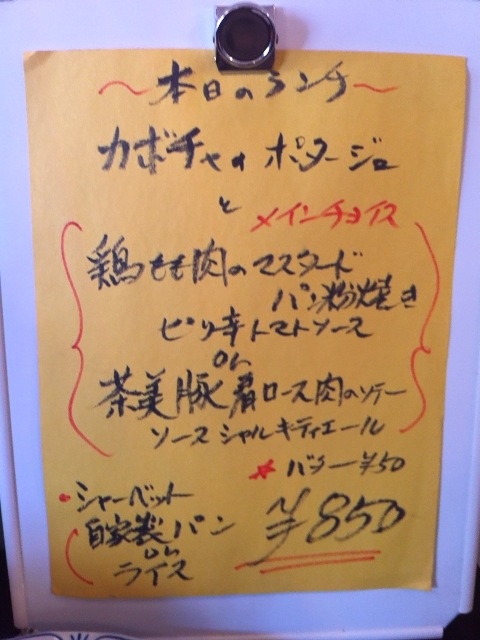 〜本日のランチ〜
カボチャのポタージュ
と
メインチョイス
鶏もも肉のマスタード
パン粉焼き
ピリ辛トマトソース
or
茶美豚肩ロース肉のソテー
ソースシャルキティエール
★バター¥50
・シャーベット
自家製パン
or
ライス
¥850